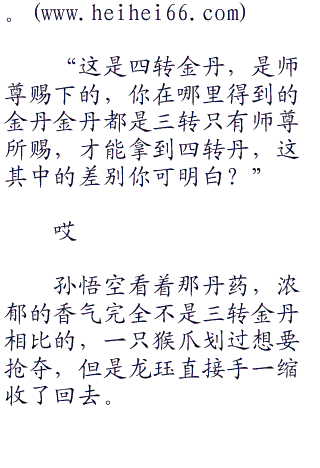 。(www.heihei66.com)
“这是四转金丹，是师
尊赐下的，你在哪里得到的
金丹金丹都是三转只有师尊
所赐，才能拿到四转丹，这
其中的差别你可明白？”
哎
孙悟空看着那丹药，浓
郁的香气完全不是三转金丹
相比的，一只猴爪划过想要
抢夺，但是龙珏直接手一缩
收了回去。